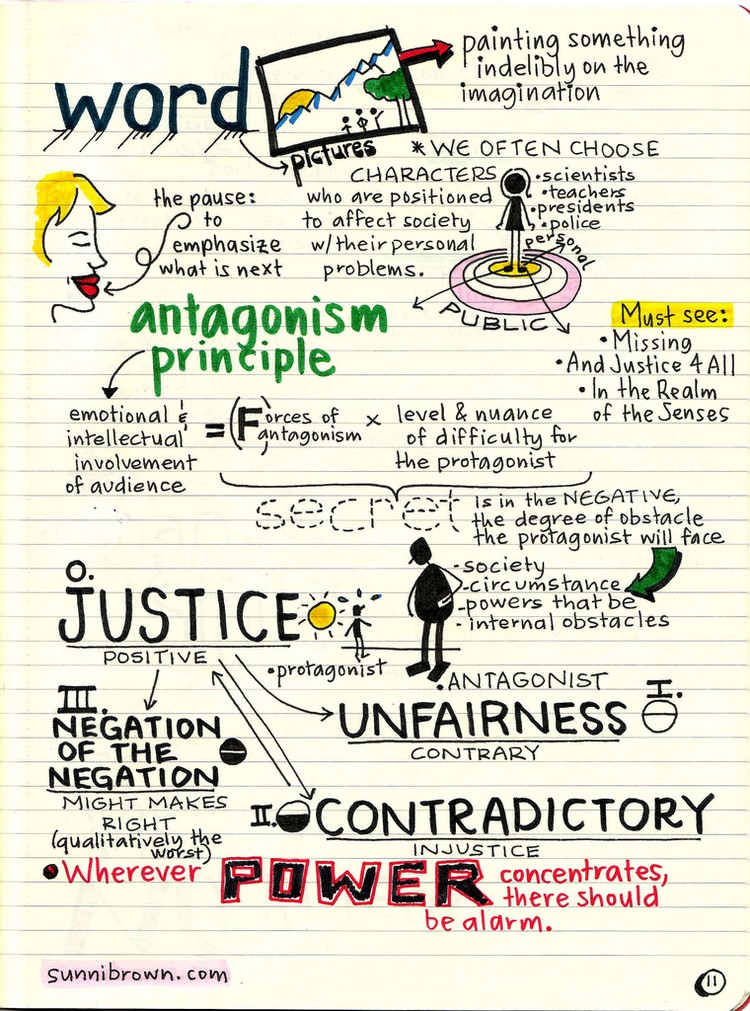 word
pictures
painting something
indelibly on the
imagination
* WE OFTEN CHOOSE
CHARACTERS
who are positioned
to affect society
w/their personal
problems.
• scientists
• teachers
• presidents
• police
personal
PUBLIC
the pause:
to
emphasize
what is next
antagonism
principle
Must see:
• Missing
• And Justice 4 All
• In the Realm
of the Senses
emotional &
intellectual
involvement
of audience
= (Forces of
antagonism
x
level & nuance
of difficulty for
the protagonist
secret
is in the NEGATIVE,
the degree of obstacle
the protagonist will face
- society
- circumstance
- powers that be
- internal obstacles
O.
JUSTICE
POSITIVE
• protagonist
• ANTAGONIST
I.
UNFAIRNESS
CONTRARY
III.
NEGATION
OF THE
NEGATION
MIGHT MAKES
RIGHT
(qualitatively the
worst)
II.
CONTRADICTORY
INJUSTICE
• Wherever POWER concentrates,
there should
be alarm.
sunnibrown.com
11